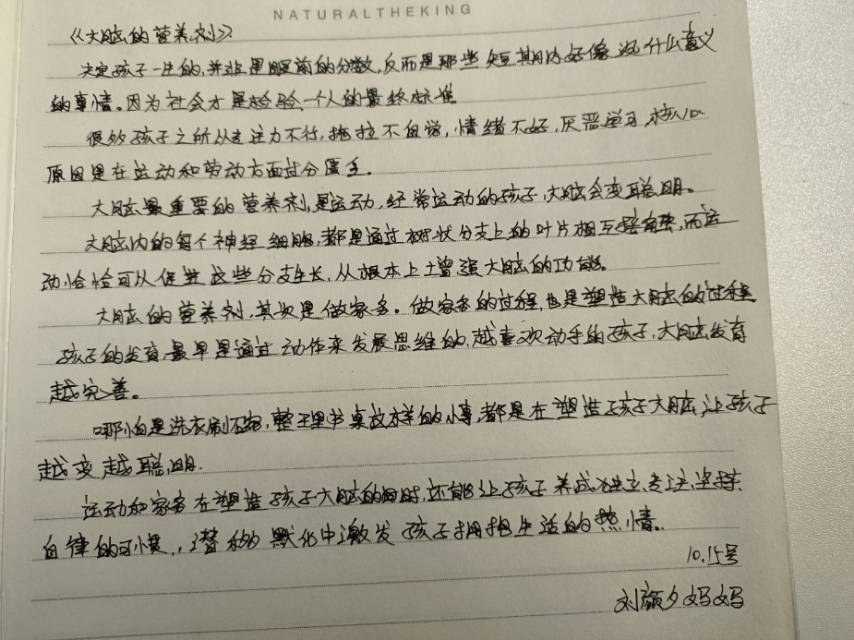 NATURALTHEKING
《大脑的营养剂》
决定孩子一生的,并非是眼前的分数,反而是那些短期内好像没什么意义
的事情。因为社会才是检验一个人的最终标准
很多孩子之所以专注力不行,拖拉不自觉,情绪不好,厌恶学习,核心
原因是在运动和劳动方面过分匮乏。
大脑最重要的营养剂,是运动,经常运动的孩子,大脑会变聪明。
大脑内的每个神经细胞,都是通过树状分支上的叶片相互接触,而运
动恰恰可以促进这些分支生长,从根本上增强大脑的功能。
大脑的营养剂,其次是做家务。做家务的过程,也是塑造大脑的过程
孩子的发育,最早是通过动作来发展思维的,越喜欢动手的孩子,大脑发育
越完善。
哪怕是洗衣刷碗,整理书桌这样的小事,都是在塑造孩子大脑,让孩子
越变越聪明.
运动和家务在塑造孩子大脑的同时,还能让孩子养成独立,专注,坚持,
自律的习惯,潜移默化中激发孩子拥抱生活的热情。
10.15号
刘颜夕妈妈